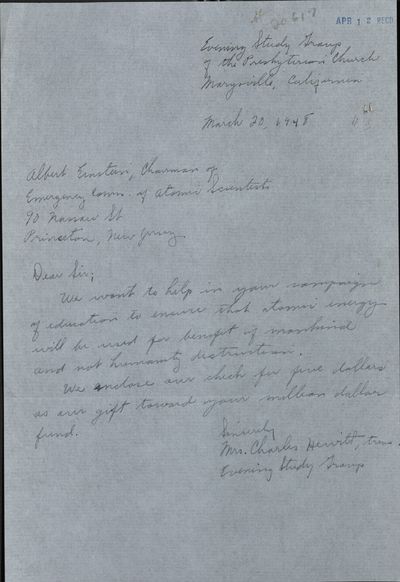 # 20617
APR 12 RECD
Evening Study Group
of the Presbyterian Church
Marysville, California
March 20, 1948
Albert Einstein, Chairman of
Emergency Comm. of Atomic Scientists
90 Nassau St
Princeton, New Jersey
Dear Sir;
We want to help in your campaign
of education to ensure that atomic energy
will be used for benefit of mankind
and not humanity destruction.
We enclose our check for five dollars
as our gift toward your million dollar
fund.
Sincerely
Mrs. Charles Hewitt, treas.
Evening Study Group